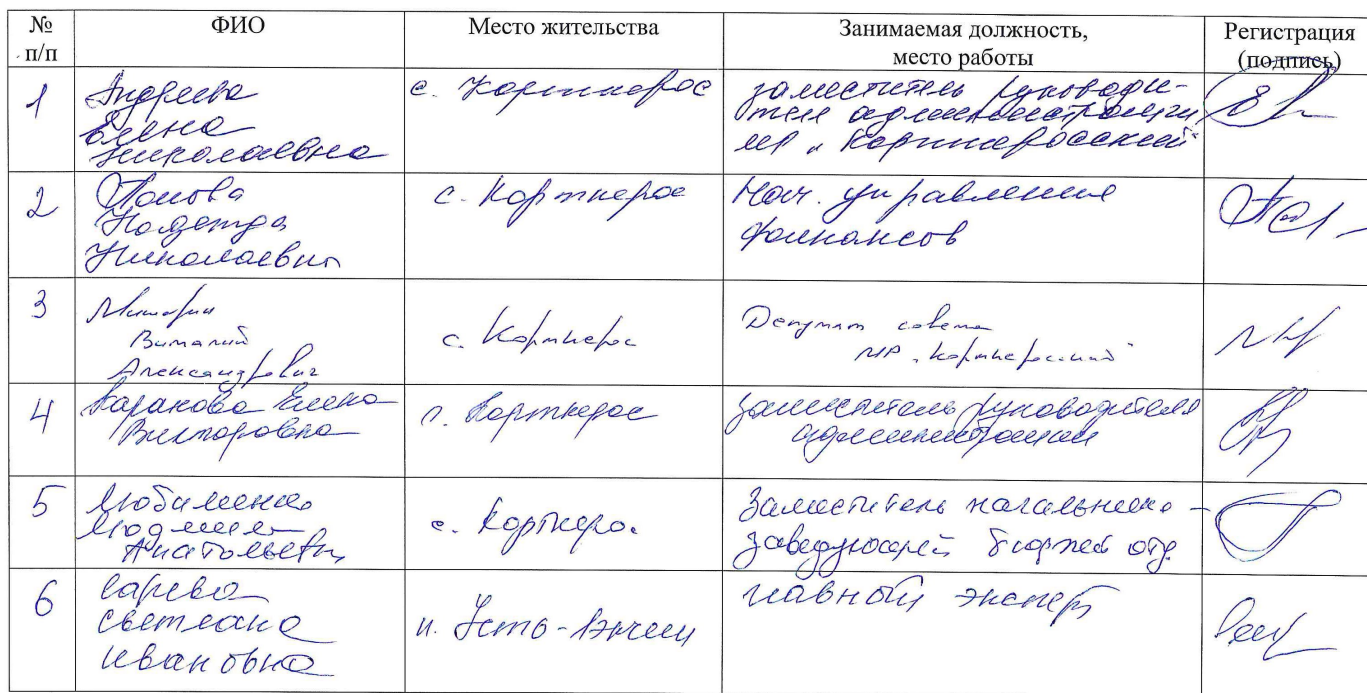 № п/п
ФИО
Место жительства
Занимаемая должность, место работы
Регистрация (подпись)
1
Андреева
Елена
Николаевна
с. Корткерос
заместитель руководи-
теля администрации
МР "Корткеросский"
2
Попова
Надежда
Николаевна
с. Корткерос
Нач. управления
финансов
3
Виталий
Александрович
с. Корткерос
Депутат совета
МР "Корткеросский"
4
Каракова Елена
Викторовна
с. Корткерос
заместитель руководителя
администрации
5
Людмила
Анатольевна
с. Корткерос
Заместитель начальника -
заведующей бюджет отд.
6
Светлана
Ивановна
главный эксперт